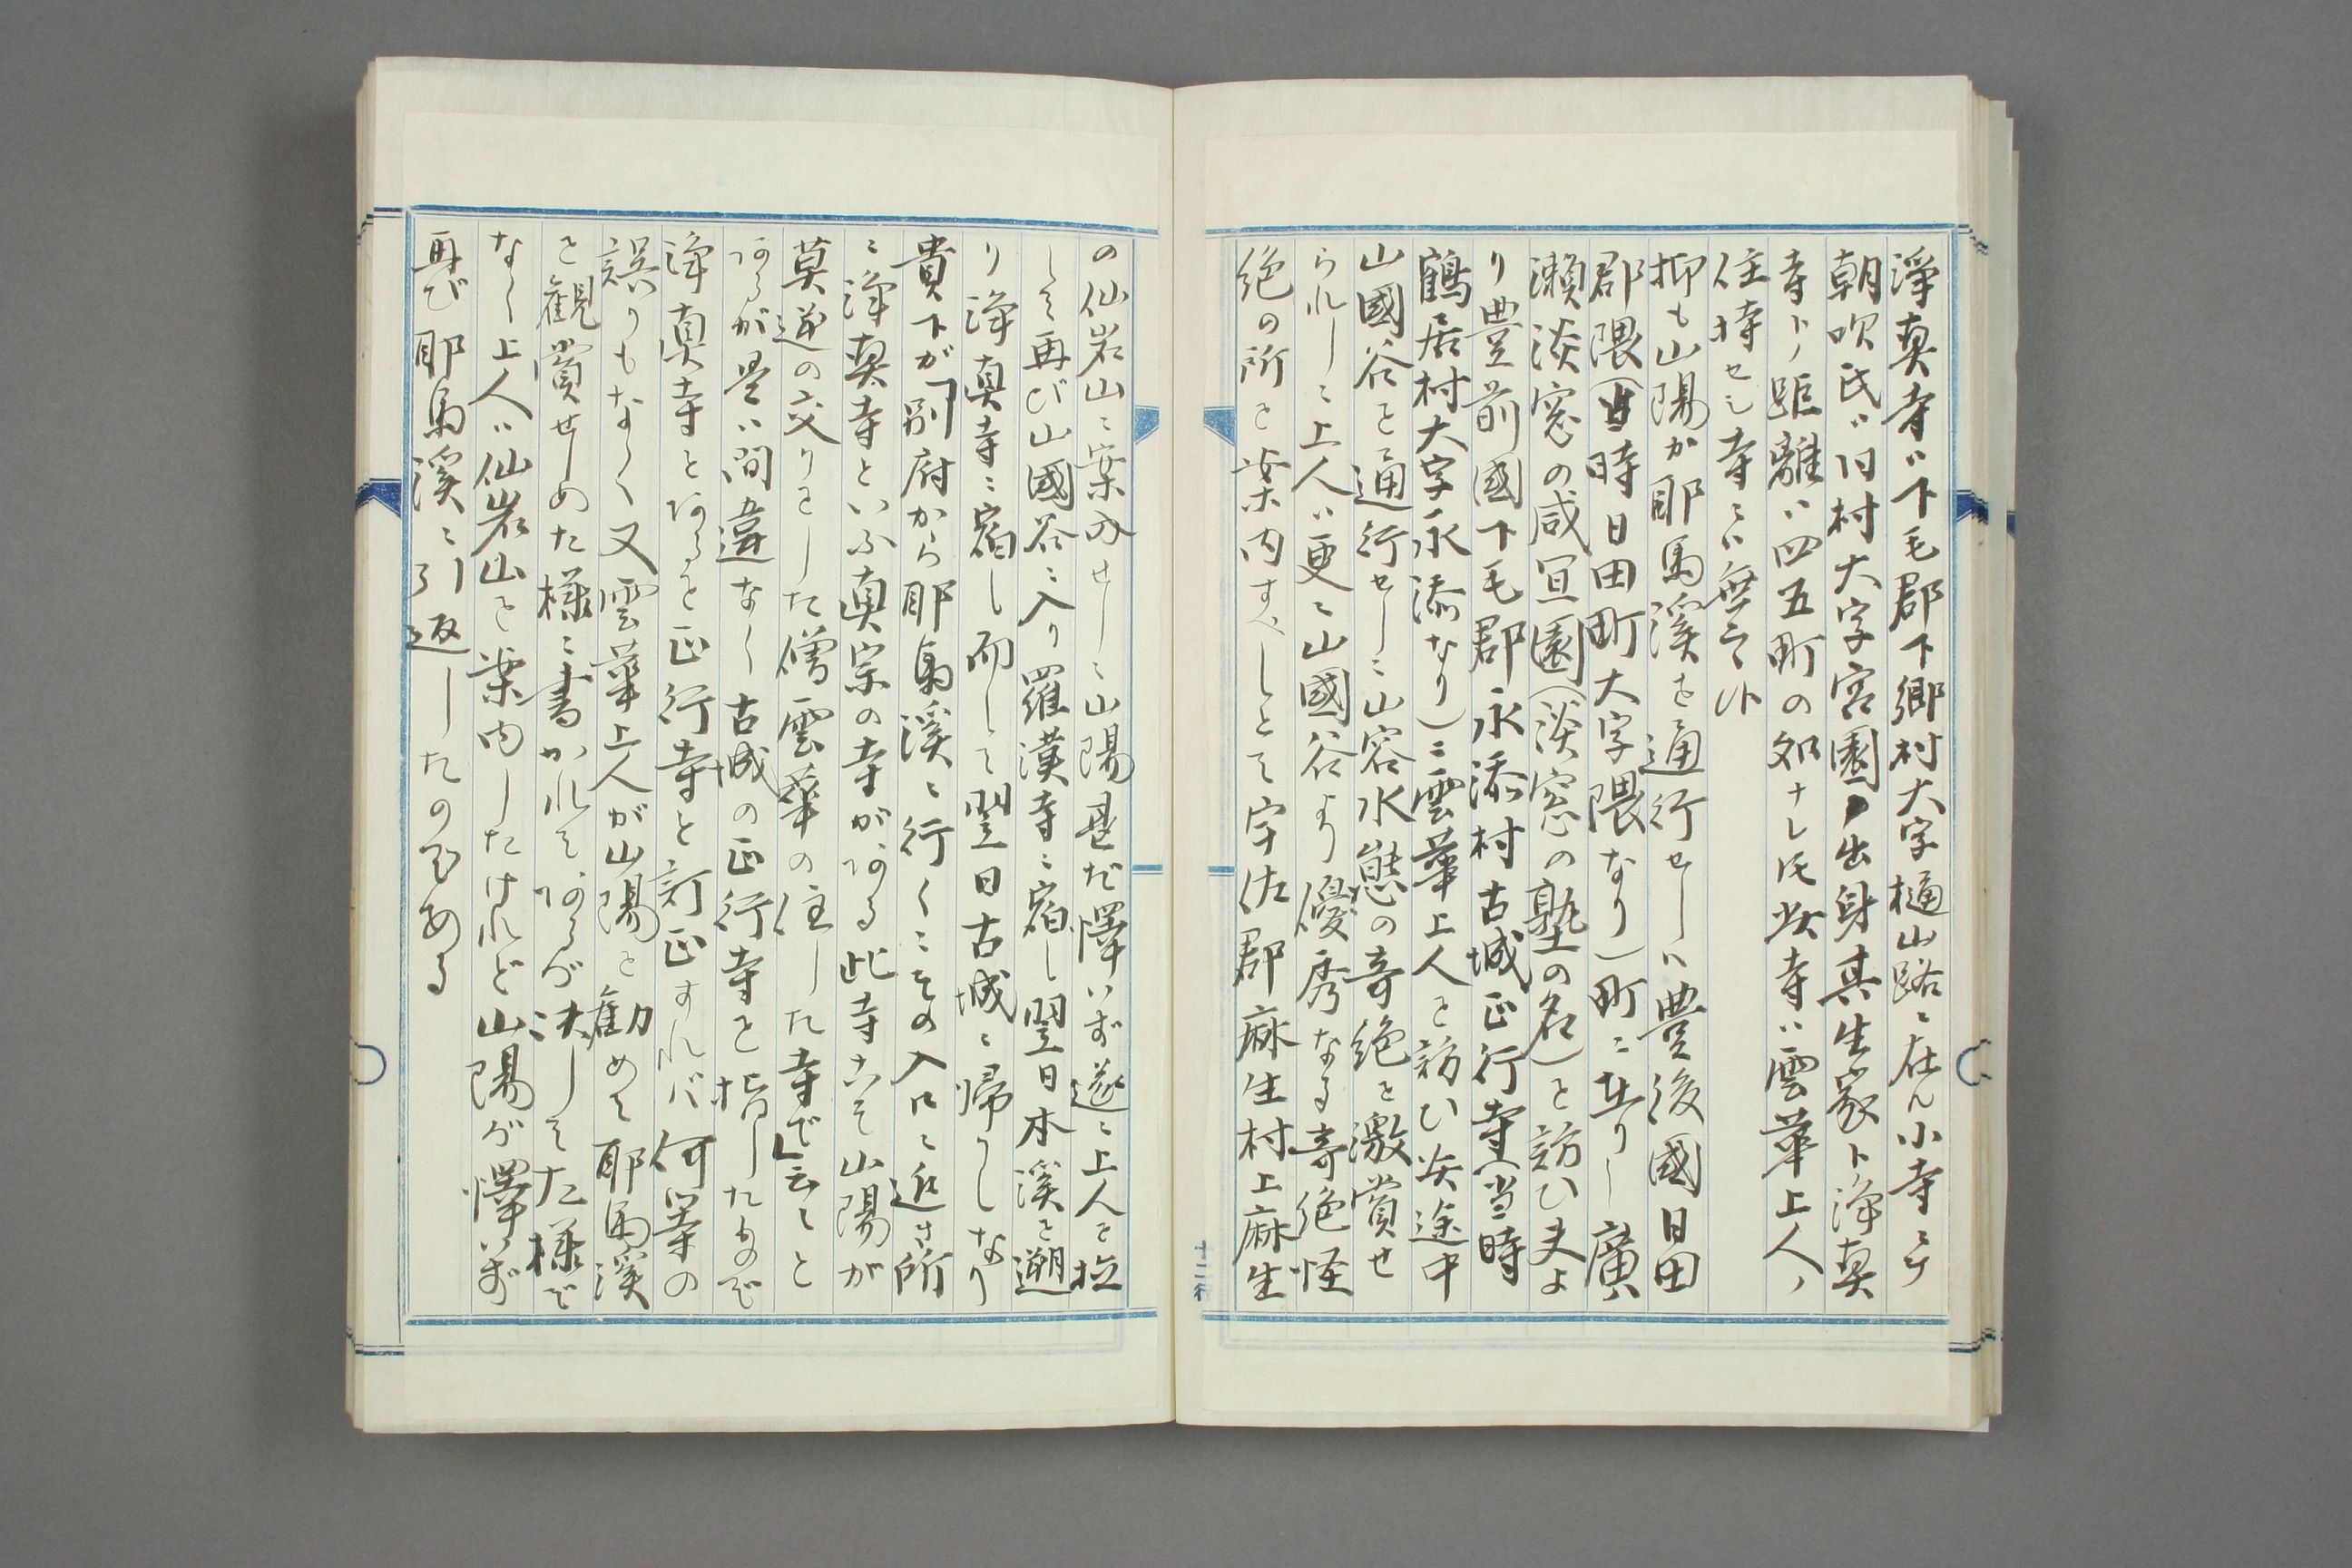 浄真寺ハ下毛郡下郷村大字樋山路ニ在ル小寺ニテ
朝吹氏ハ同村大字宮園ノ出身其生家ト浄真
寺トノ距離ハ四五町の処ナレ氏此寺ハ雲華上人ノ
住持せし寺にハ無之候
抑も山陽が耶馬溪を通行せしハ豊後國日田
郡隈(当時日田町大字隈なり)町ニ在りし廣
瀬淡窓の咸宜園(淡窓の塾の名)を訪ひ夫よ
り豊前國下毛郡永添村古城正行寺(当時
鶴居村大字永添なり)ニ雲華上人を訪ひ此途中
山國谷を通行せしニ山容水態の奇絶を激賞せ
られしニ上人ハ更ニ山國谷より優秀なる奇絶怪
絶の所を案内すべしとて宇佐郡麻生村上麻生
十二行
の仙岩山ニ案内せしニ山陽甚だ懌ハず遂ニ上人を拉
して再び山國谷ニ入り羅漢寺ニ宿し翌日本溪を遡
り浄真寺ニ宿し而して翌日古城ニ帰りしなり
貴下が「別府から耶馬溪ニ行くニその入口ニ近き所
ニ浄真寺といふ真宗の寺がある此寺こそ山陽が
莫逆の交りをした僧雲華の住した寺で」云々と
あるが是ハ間違なく古城の正行寺を指したもので
浄真寺とあるを正行寺と訂正すれバ何等の
誤りもなく又雲華上人が山陽を勧めて耶馬溪
を観賞せしめた様ニ書かれてあるが決してた様で
なく上人ハ仙岩山を案内したけれど山陽が懌ハず
再び耶馬溪ニ引返したのである